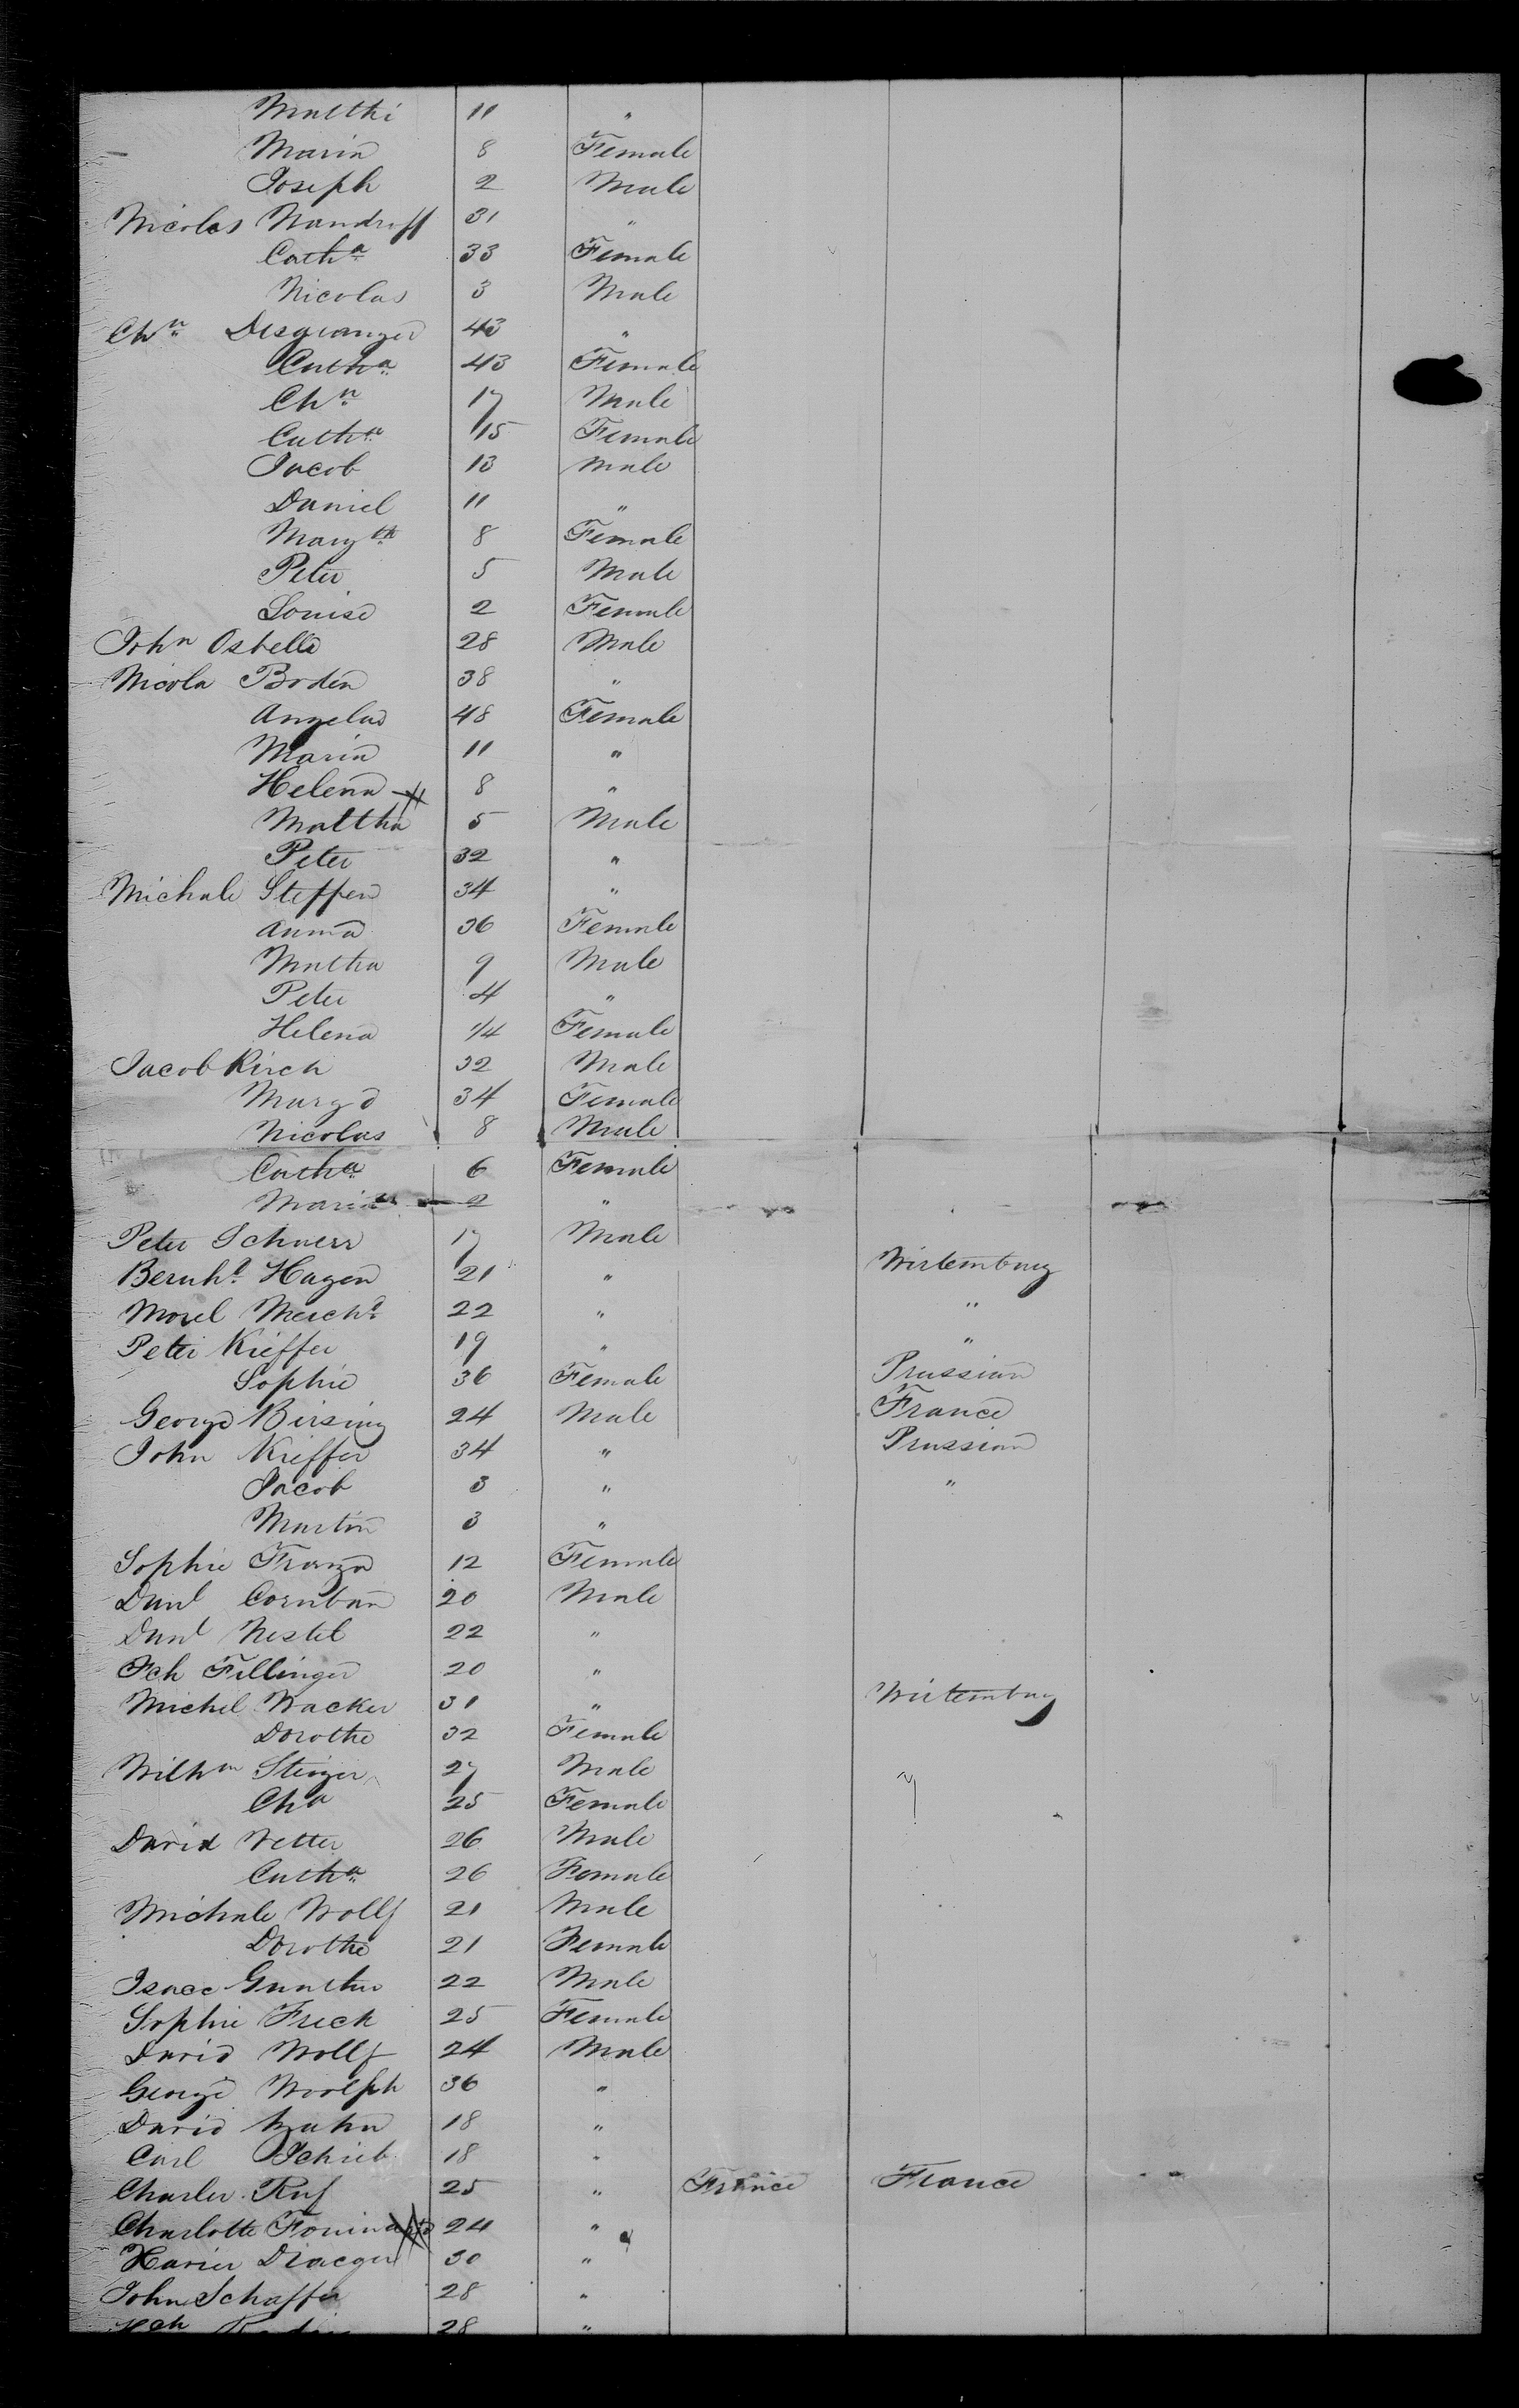 Matthi 11 "
Maria 8 Female
Joseph 2 Male
Nicolas Nandruff 31 "
Catha 33 Female
Nicolas 3 Male
Chn Desgranger 43 "
Catha 43 Female
Chn 17 Male
Catha 15 Female
Jacob 13 Male
Daniel 11 "
Margth 8 Female
Peter 5 Male
Louise 2 Female
John Osbella 28 Male
Nicola Boden 38 "
Angela 48 Female
Maria 11 "
Helena 8 "
Mattha 5 Male
Peter 32 "
Michale Steffen 34 "
Anna 36 Female
Matha 9 Male
Peter 4 "
Helena 1/4 Female
Jacob Kirch 32 Male
Marga 34 Female
Nicolas 8 Male
Catha 6 Female
Maria 2 "
Peter Schnerr 17 Male
Bernhd Hagen 21 " Wirtemburg
Morel Merchd 22 " "
Peter Kieffer 19 " "
Sophie 36 Female Prussian
George Birsing 24 Male France
John Kieffer 34 " Prussian
Jacob 3 " "
Martin 3 "
Sophie Franza 12 Female
Danl Cornban 20 Male
Danl Nestel 22 "
Fch Fillinger 20 "
Michel Wacker 31 " Wirtemburg
Dorothe 32 Female
Wilhm Steiger 27 Male
Cha 25 Female
David Vetter 26 Male
Catha 26 Female
Michale Wollf 21 Male
Dorothe 21 Female
Isaac Gunther 22 Male
Sophie Freck 25 Female
David Wollf 24 Male
George Woolfph 36 "
David Hahn 18 "
Carl Schieb 18 "
Charles Ruf 25 " France France
Charlotte 24 "
Xavier Draeger 30 "
John Schaffer 28 "
28 "